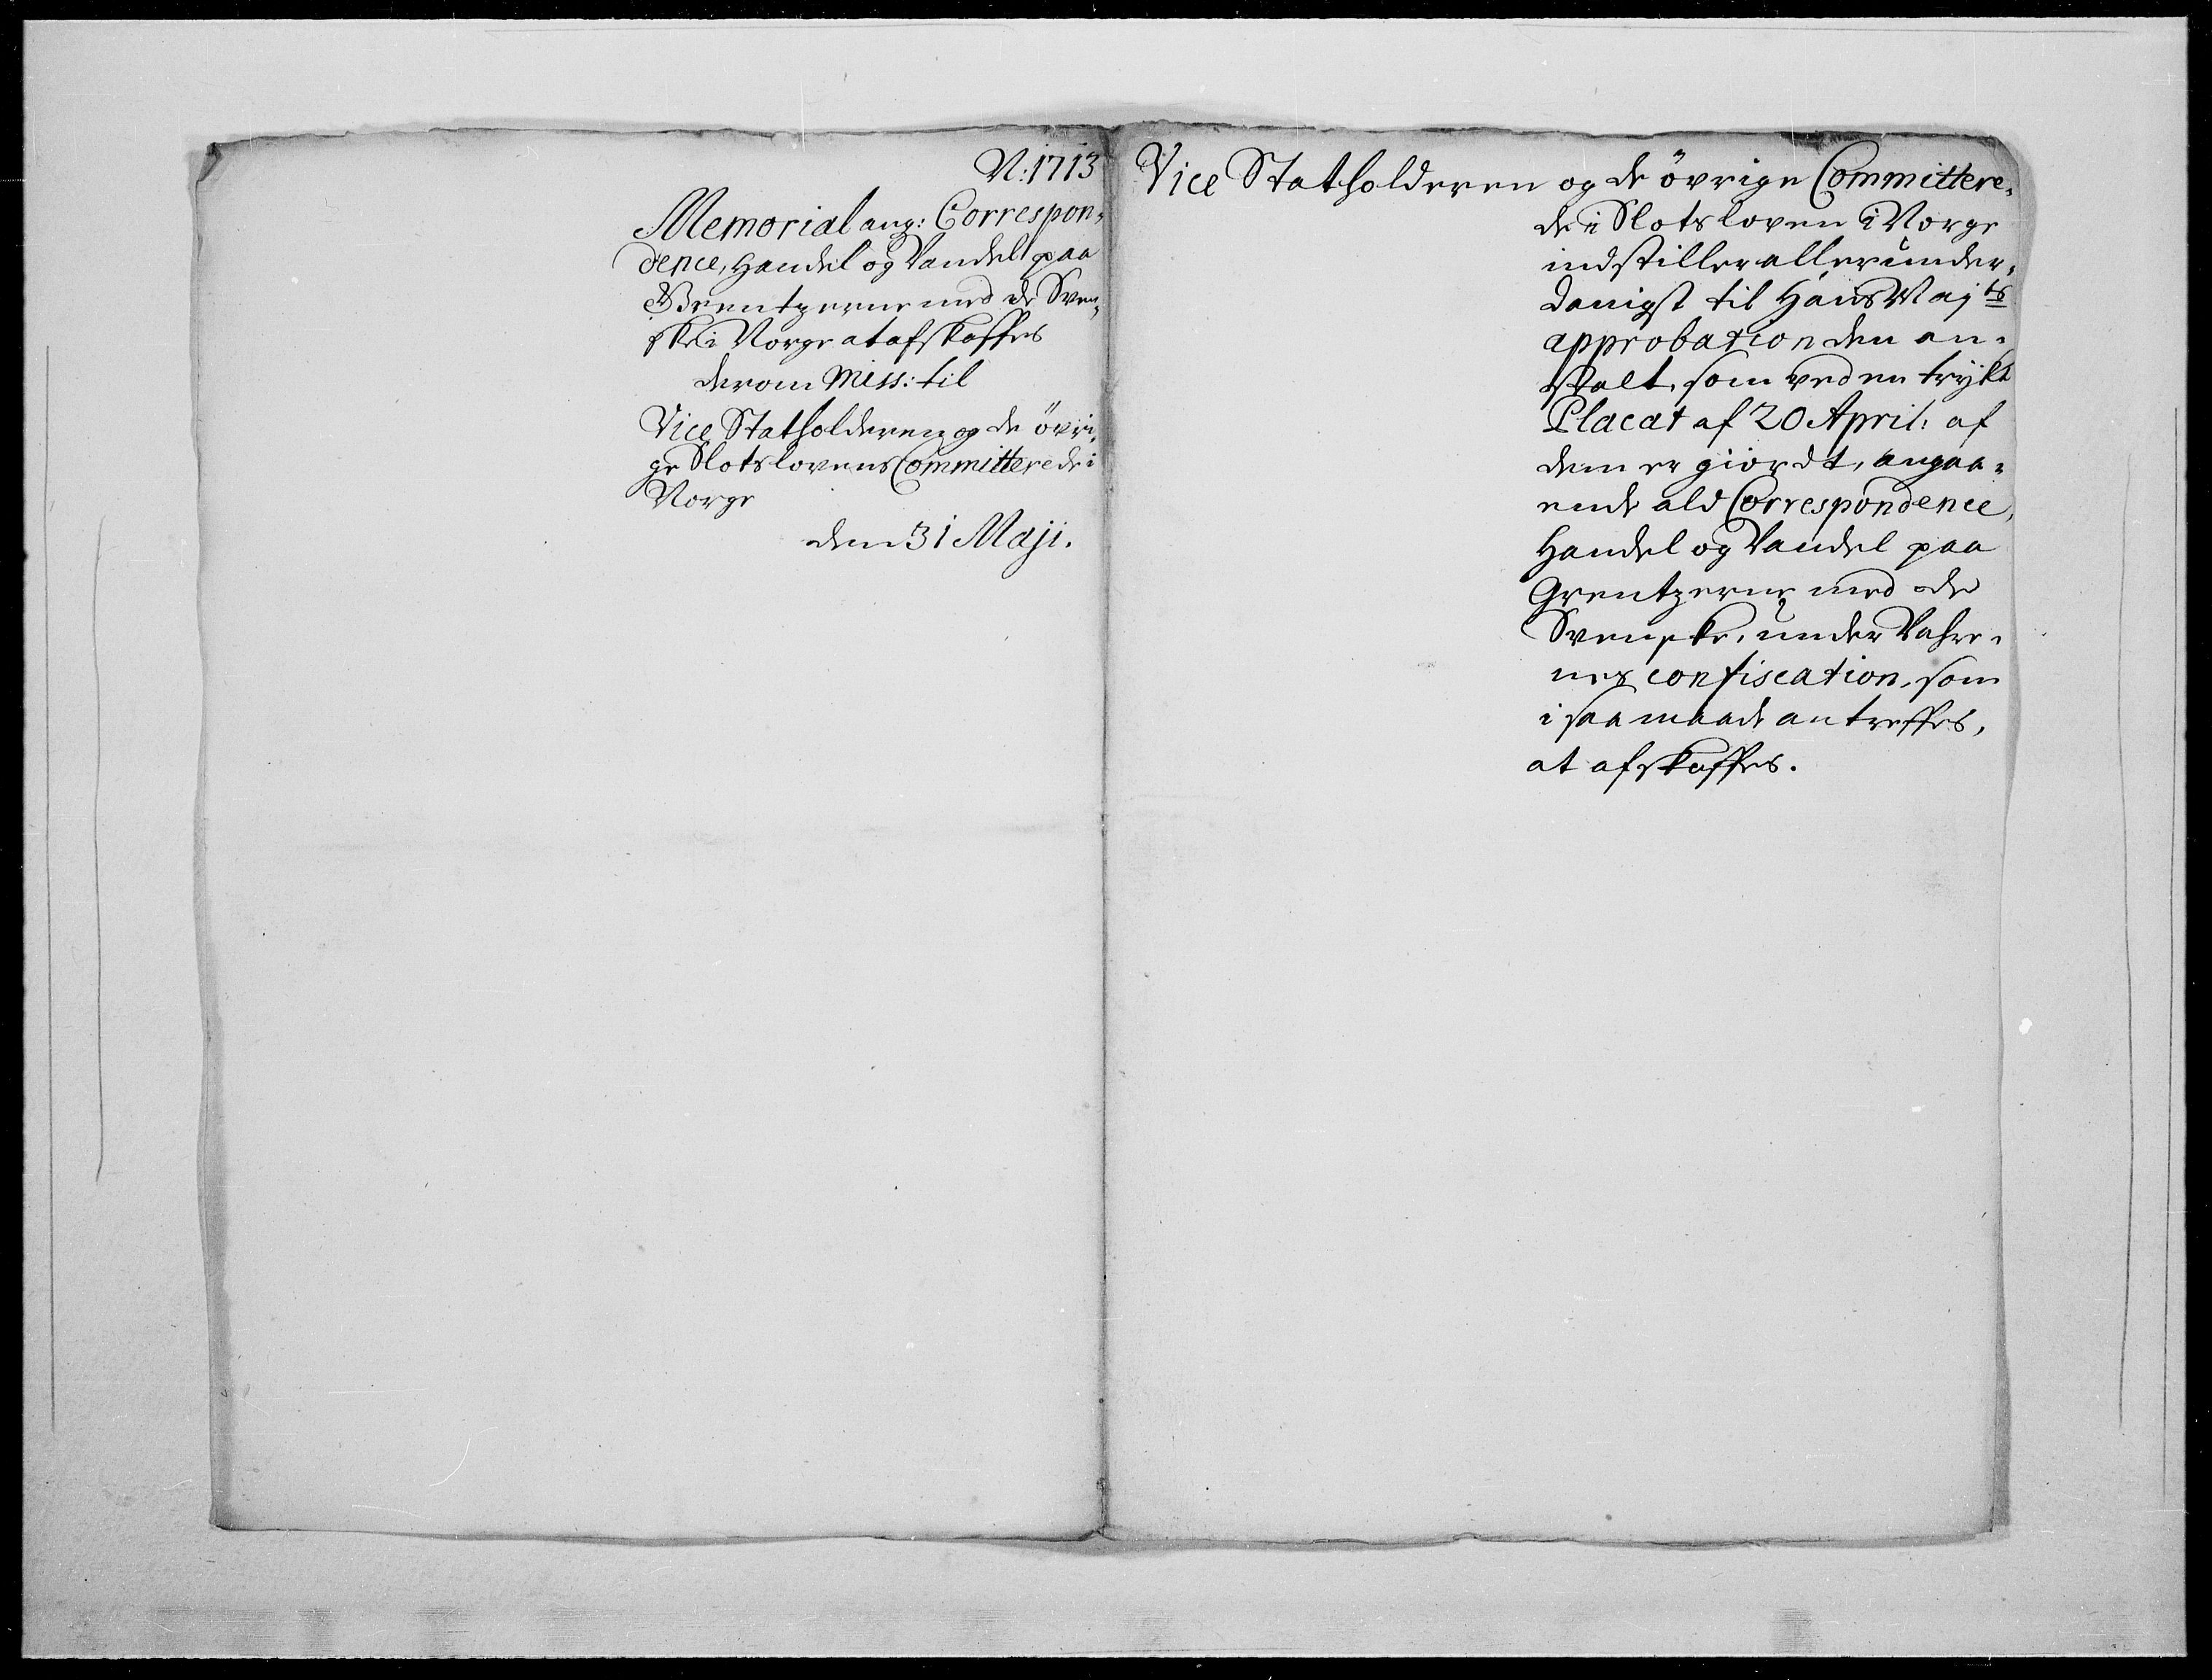 N: 1713
Memorial ang: Correspon-
dence, Handel og Vandel paa
Grentzerne med de Sven-
ske i Norge at afskaffes
derom Miss: til
Vice Statholderen og de öfri-
ge Slotslovens Committerede i
Norge
den 31 Maji.
Vice Statholderen og de övrige Committere-
de i Slotsloven i Norge
indstiller allerunder-
danigst til Hans Maj ts
approbation den an-
stalt, som ved en trykt
Placat af 20 April: af
dem er giordt, angaa-
ende ald Correspondence,
Handel og Vandel paa
Grentzerne med de
Svenske, under Vahre-
nes confiscation, som
i saa maade antreffes,
at afskaffes.